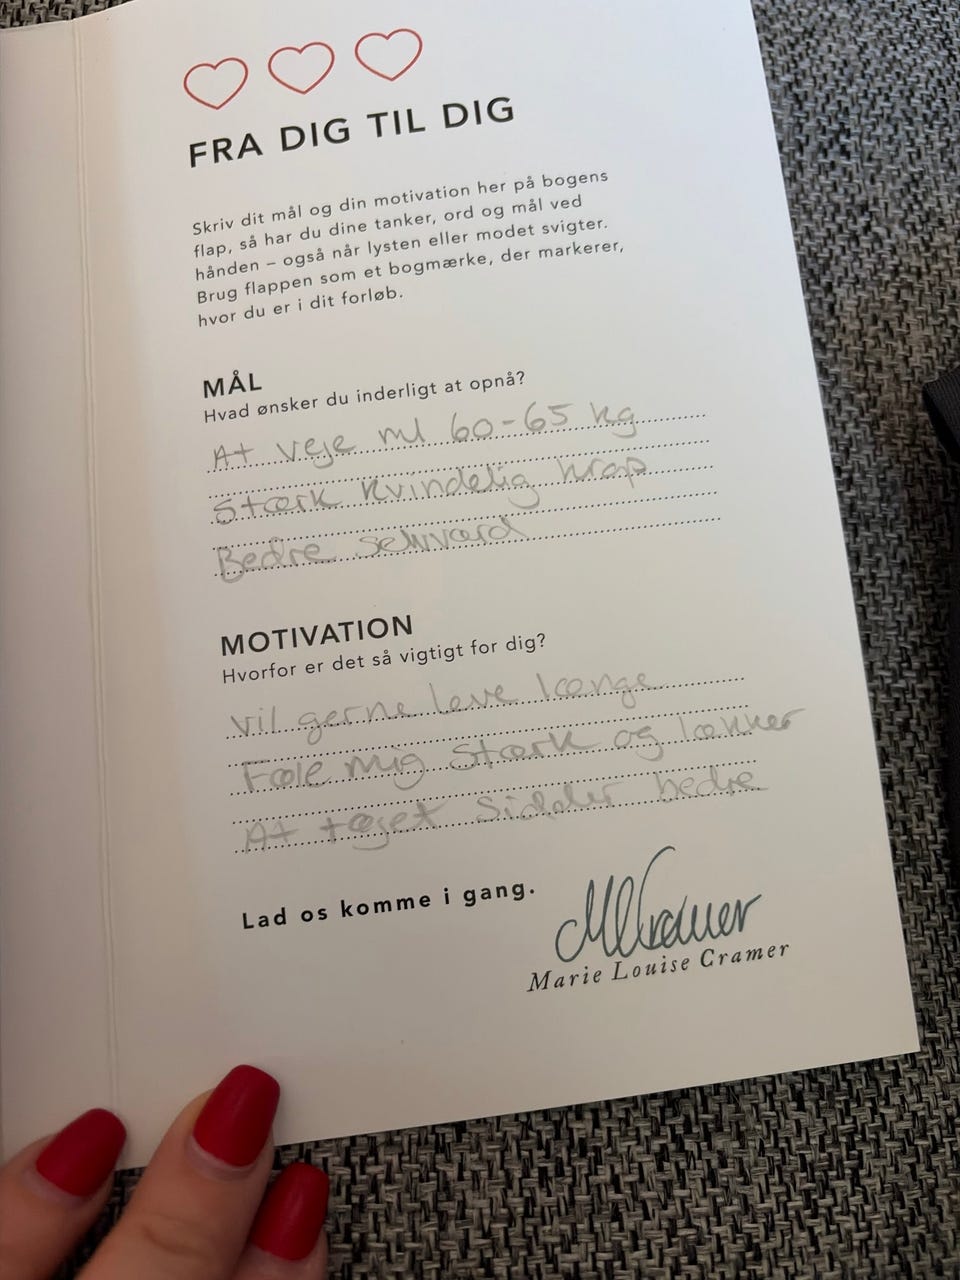 FRA DIG TIL DIG
Skriv dit mål og din motivation her på bogens
flap, så har du dine tanker, ord og mål ved
hånden – også når lysten eller modet svigter.
Brug flappen som et bogmærke, der markerer,
hvor du er i dit forløb.
MÅL
Hvad ønsker du inderligt at opnå?
At veje ml 60-65 kg
Stærk kvindelig krop
Bedre selvværd
MOTIVATION
Hvorfor er det så vigtigt for dig?
Vil gerne leve længe
Føle mig stærk og lækker
At tøjet sidder bedre
Lad os komme i gang.
MLCramer
Marie Louise Cramer